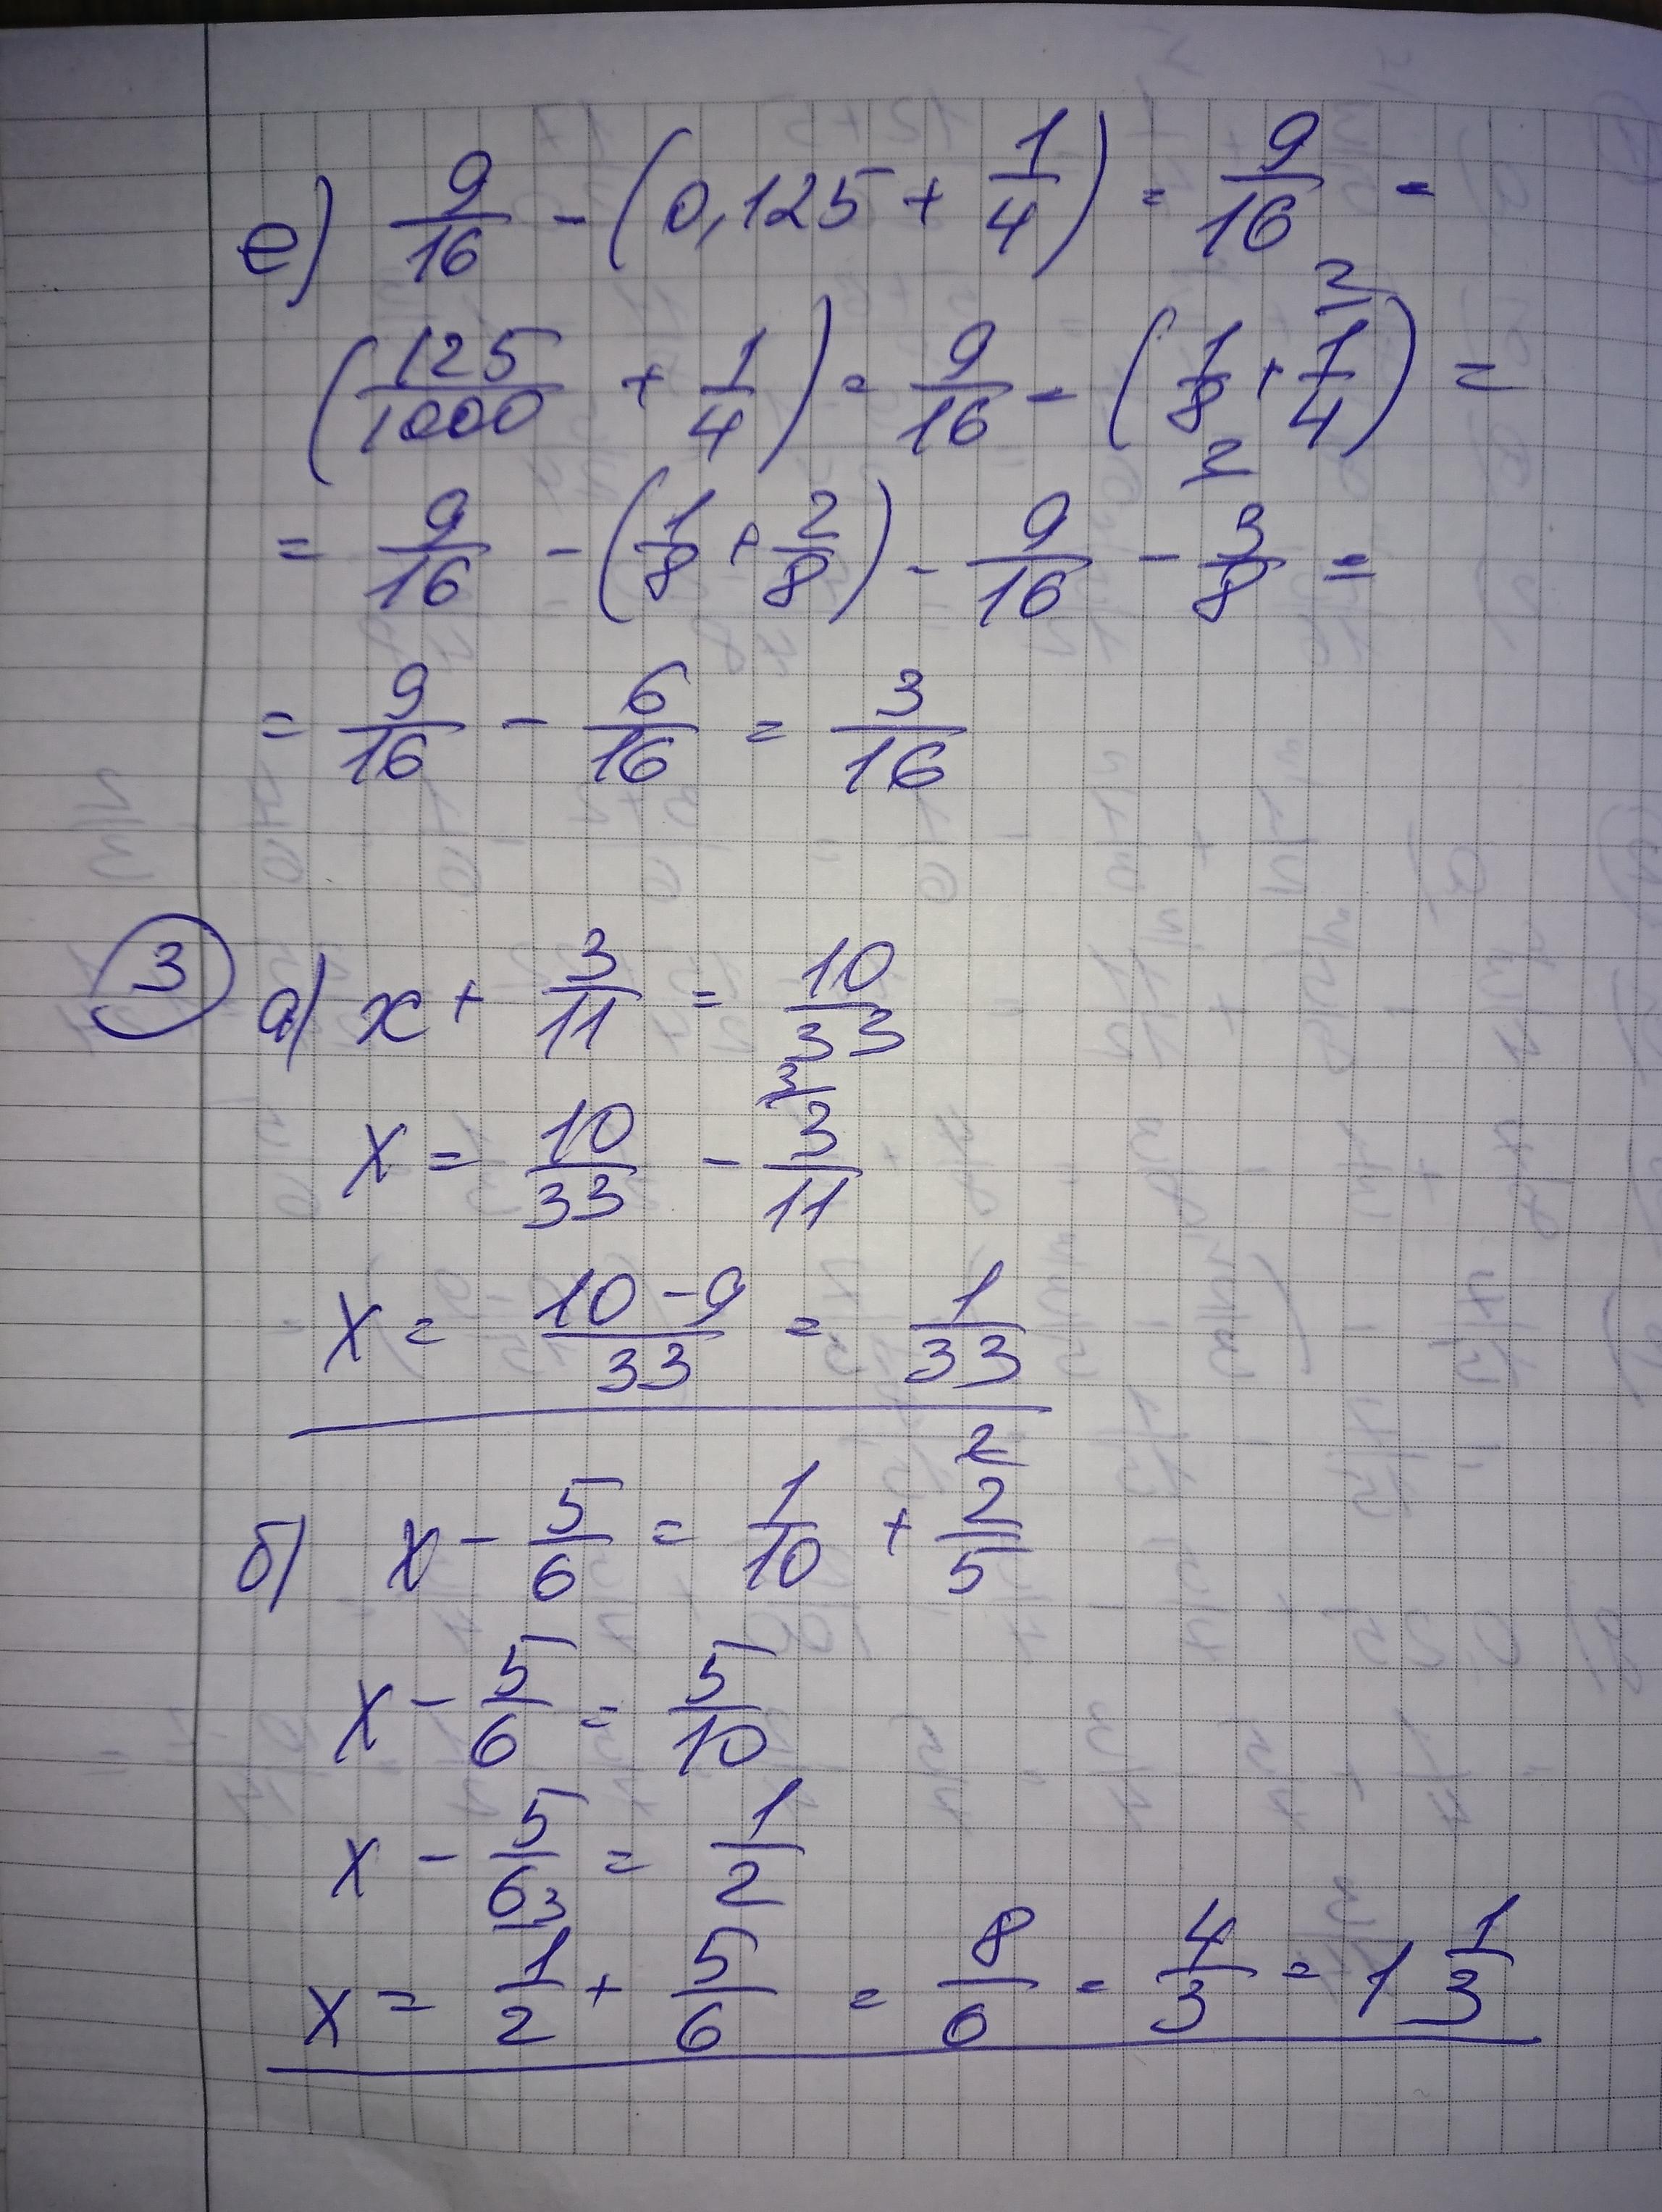 е) 9/16 - (0,125 + 1/4) = 9/16 -
(125/1000 + 1/4) = 9/16 - (1/8 + 1/4 2) =
= 9/16 - (1/8 + 2/8) - 9/16 - 3/8 2 =
= 9/16 - 6/16 = 3/16
3 а) x + 3/11 = 10/33
x = 10/33 - 3/11 3
x = 10-9/33 = 1/33
б) x - 5/6 = 1/10 + 2/5 2
x - 5/6 = 5/10
x - 5/6 = 1/2
x = 1/2 3 + 5/6 = 8/6 = 4/3 = 1 1/3